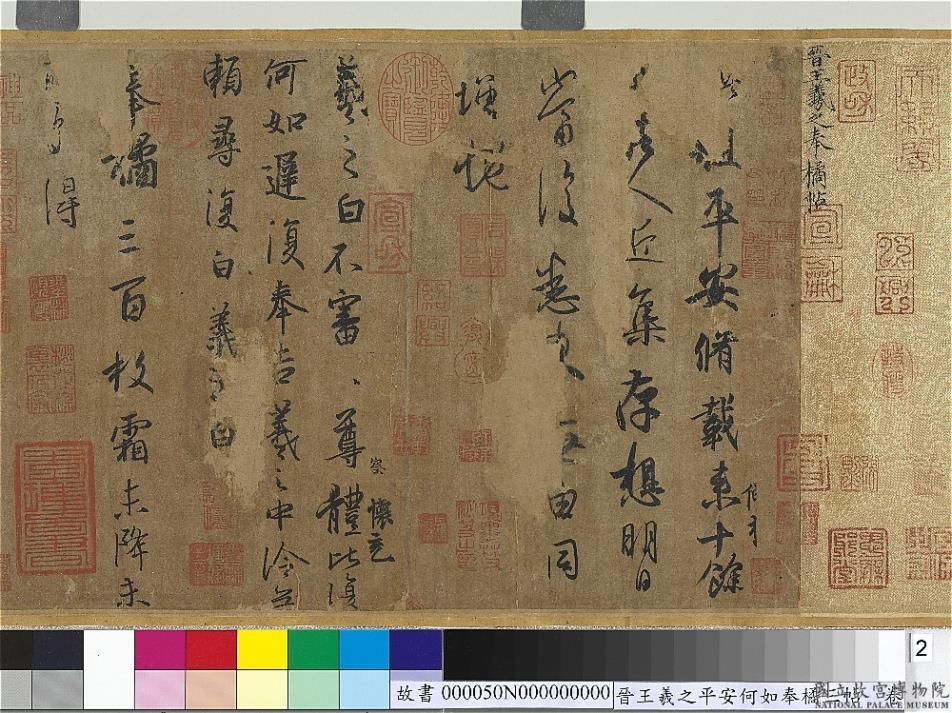 晉王羲之奉橘帖
此粗平安脩載來十餘
日諸人近集存想明日
當復悉來无由同
增慨
羲之白不審、尊體比復
察
懷充
何如遲復奉告羲之中冷無
賴尋復白羲之白
奉橘三百枚霜未降未
可多得
政和
宣和
紹興
2
故書 000050N000000000
晉王羲之平安何如奉橘三帖 卷
國立故宮博物院
NATIONAL PALACE MUSEUM